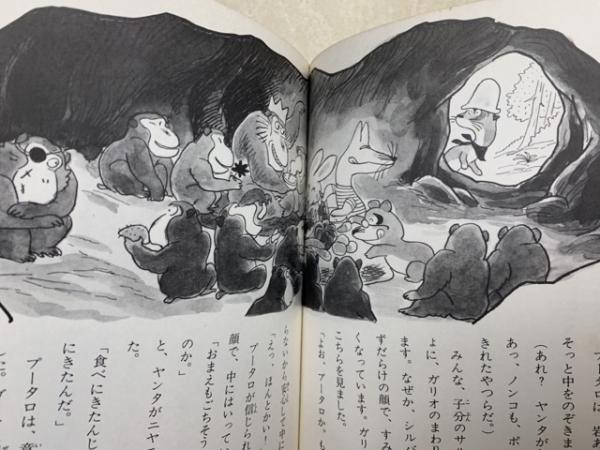 ブータロは、岩あ
そっと中をのぞきま
（あれ？　ヤンタが
あっ、ノンコも、ポ
きれたやつらだ。）
みんな、子分のサル
ょに、ガリオのまわり
ます。なぜか、シルバ
ずだらけの顔で、すみ
くなっています。ガリ
こちらを見ました。
「よお、ブータロか。も
らないから安心して中に
「えっ、ほんとかい！」
ブータロが信じられ
顔で、中にはいってい
「おまえもごちそう
のか。」
と、ヤンタがニヤ
た。
「食べにきたんじ
にきたんだ。」
ブータロは、意